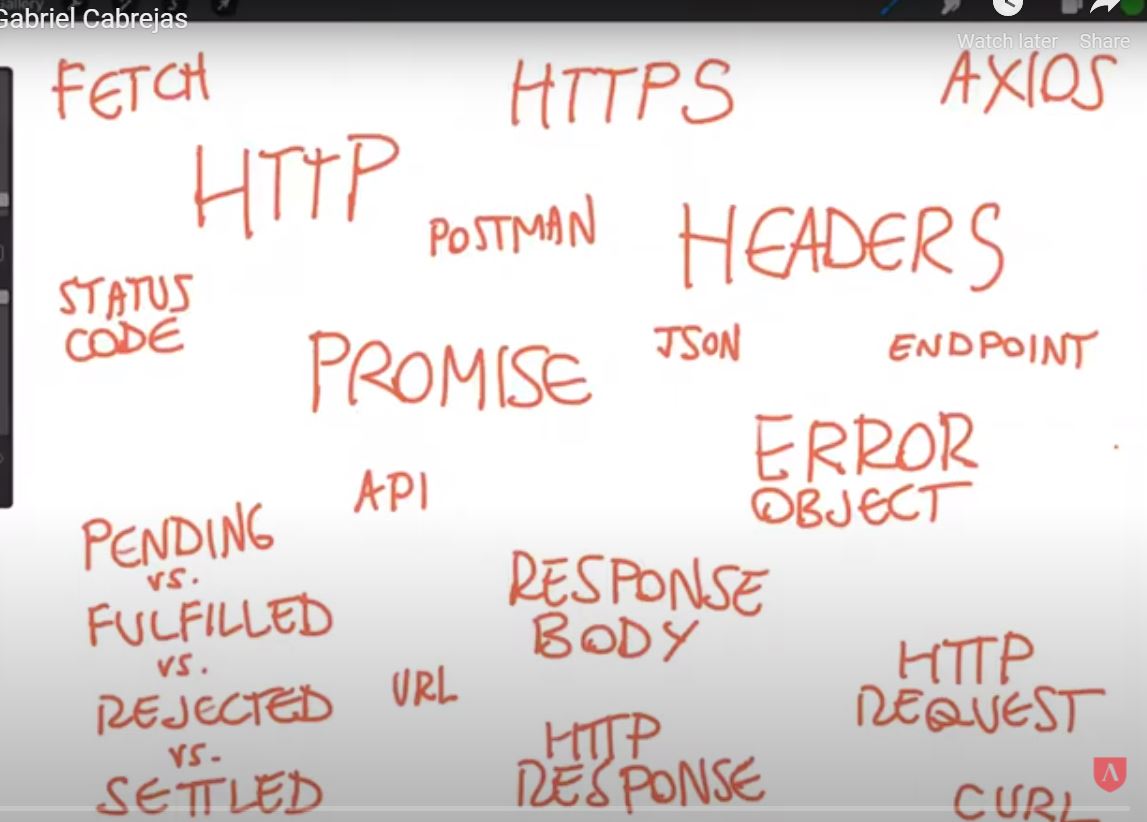 Gabriel Cabrejas
Watch later Share
FETCH HTTPS AXIOS
HTTP
POSTMAN HEADERS
STATUS
CODE
PROMISE JSON ENDPOINT
ERROR
OBJECT
API
PENDING
vs.
FULFILLED
vs.
REJECTED
vs.
SETTLED
RESPONSE
BODY
URL
HTTP
REQUEST
HTTP
RESPONSE
CURL